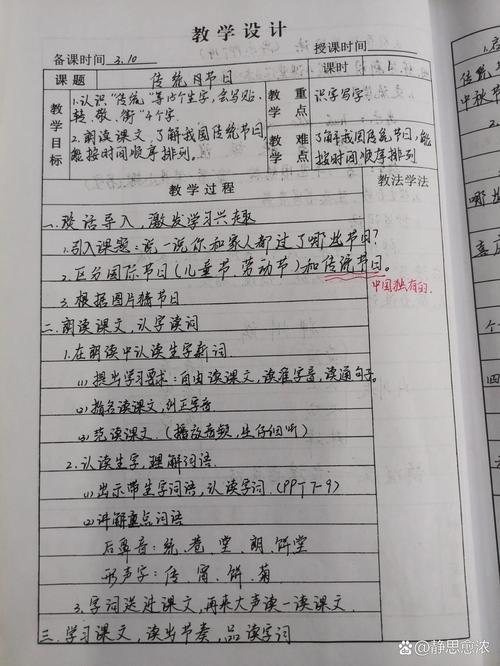 教学设计
备课时间 3.10 授课时间
课题 传统节日 课时 1
教学目标
1.认识“传统”等15个生字,会写贴、
转、敬、街“4个字.
2.朗读课文,了解我国传统节日,
能按时间顺序排列.
重点
识字写字
难点
了解我国传统节日,能
按时间顺序排列
教学过程
教法学法
一.谈话导入,激发学习兴趣
1.引入课题:说一说你和家人都过了哪些节日?
2.区分国际节日(儿童节 劳动节)和传统节日。
中国独有的.
3.根据图片猜节日
二.朗读课文,认字读词
1.在朗读中认读生字新词.
(1)提出学习要求:自由读课文,读准字音,读通句子。
(2)指名读课文,纠正字音
(3)范读课文.(播放音频,生仔细听)
2.认读生字,理解词语
(1)出示带生字词语,认读字词.(PPT 7-9)
(2)讲解重点词语
后鼻音:统 巷 堂 朗 饼 堂
形声字:传 宵 饼 菊
3.字词送进课文,再来大声读一读课文.
三.学习课文,读出节奏,品读字词
传统
中秋节
哪些
个
四
@静思愈浓